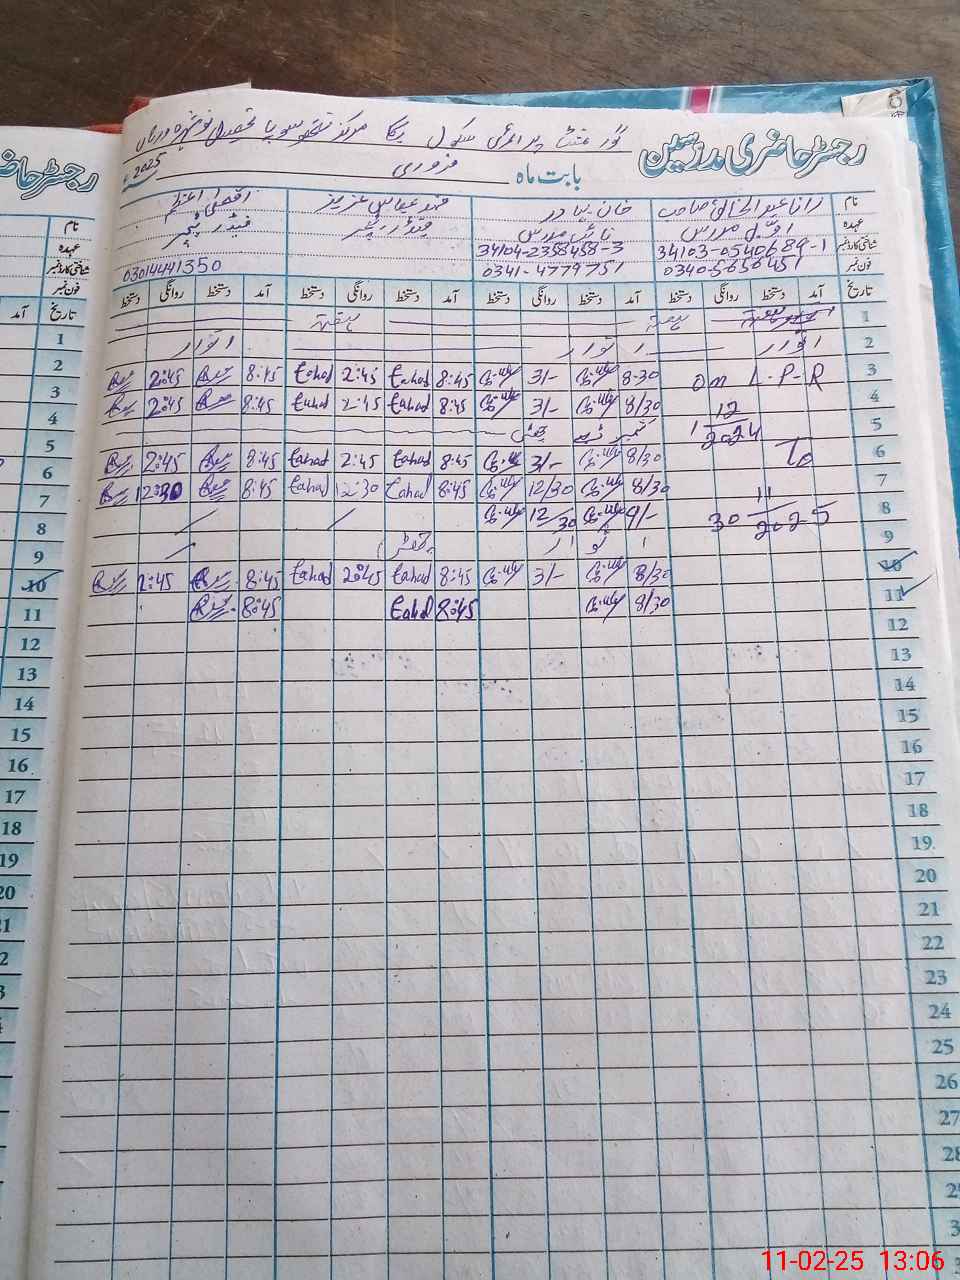 رجسٹر حاضری مدرسین
گورنمنٹ پرائمری سکول پکا مرکز تحصیل نوشہرہ ورکاں
بابت ماہ فروری 2025ء
نام رانا عبدالخالق صاحب خان بہادر فہد عباس عزیز اقصیٰ اعظم
عہدہ مدرس نائب مدرس فیڈر ٹیچر فیڈر ٹیچر
شناختی کارڈ نمبر 34103-0540689-1 34104-2358458-3
فون نمبر 0340-5650451 0341-4779751 03014441350
تاریخ آمد دستخط روانگی دستخط آمد دستخط روانگی دستخط آمد دستخط روانگی دستخط آمد دستخط روانگی دستخط
1 ہفتہ ہفتہ
2 اتوار اتوار اتوار
3 on L-P-R 8-30 3/- 8:45 Fahad 2:45 Fahad 8:45 2:45
4 1 12 2024 8/30 3/- 8:45 Fahad 2:45 Fahad 8:45 2:45
5 کشمیر ڈے چھٹی
6 To 8/30 3/- 8:45 Fahad 2:45 Fahad 8:45 2:45
7 8/30 12/30 8:45 Fahad 12:30 Fahad 8:45 12:30
8 30 11 2025 9/- 12/30
9 اتوار چھٹی
10 8/30 3/- 8:45 Fahad 2:45 Fahad 8:45 2:45
11 8/30 8:45 Fahad 8:45
12
13
14
15
16
17
18
19
20
21
22
23
24
25
26
27
28
رجسٹر حا
نام
عہدہ
شناختی کارڈ نمبر
فون نمبر
تاریخ آمد
1
2
3
4
5
6
7
8
9
10
11
12
13
14
15
16
17
18
19
20
11-02-25 13:06